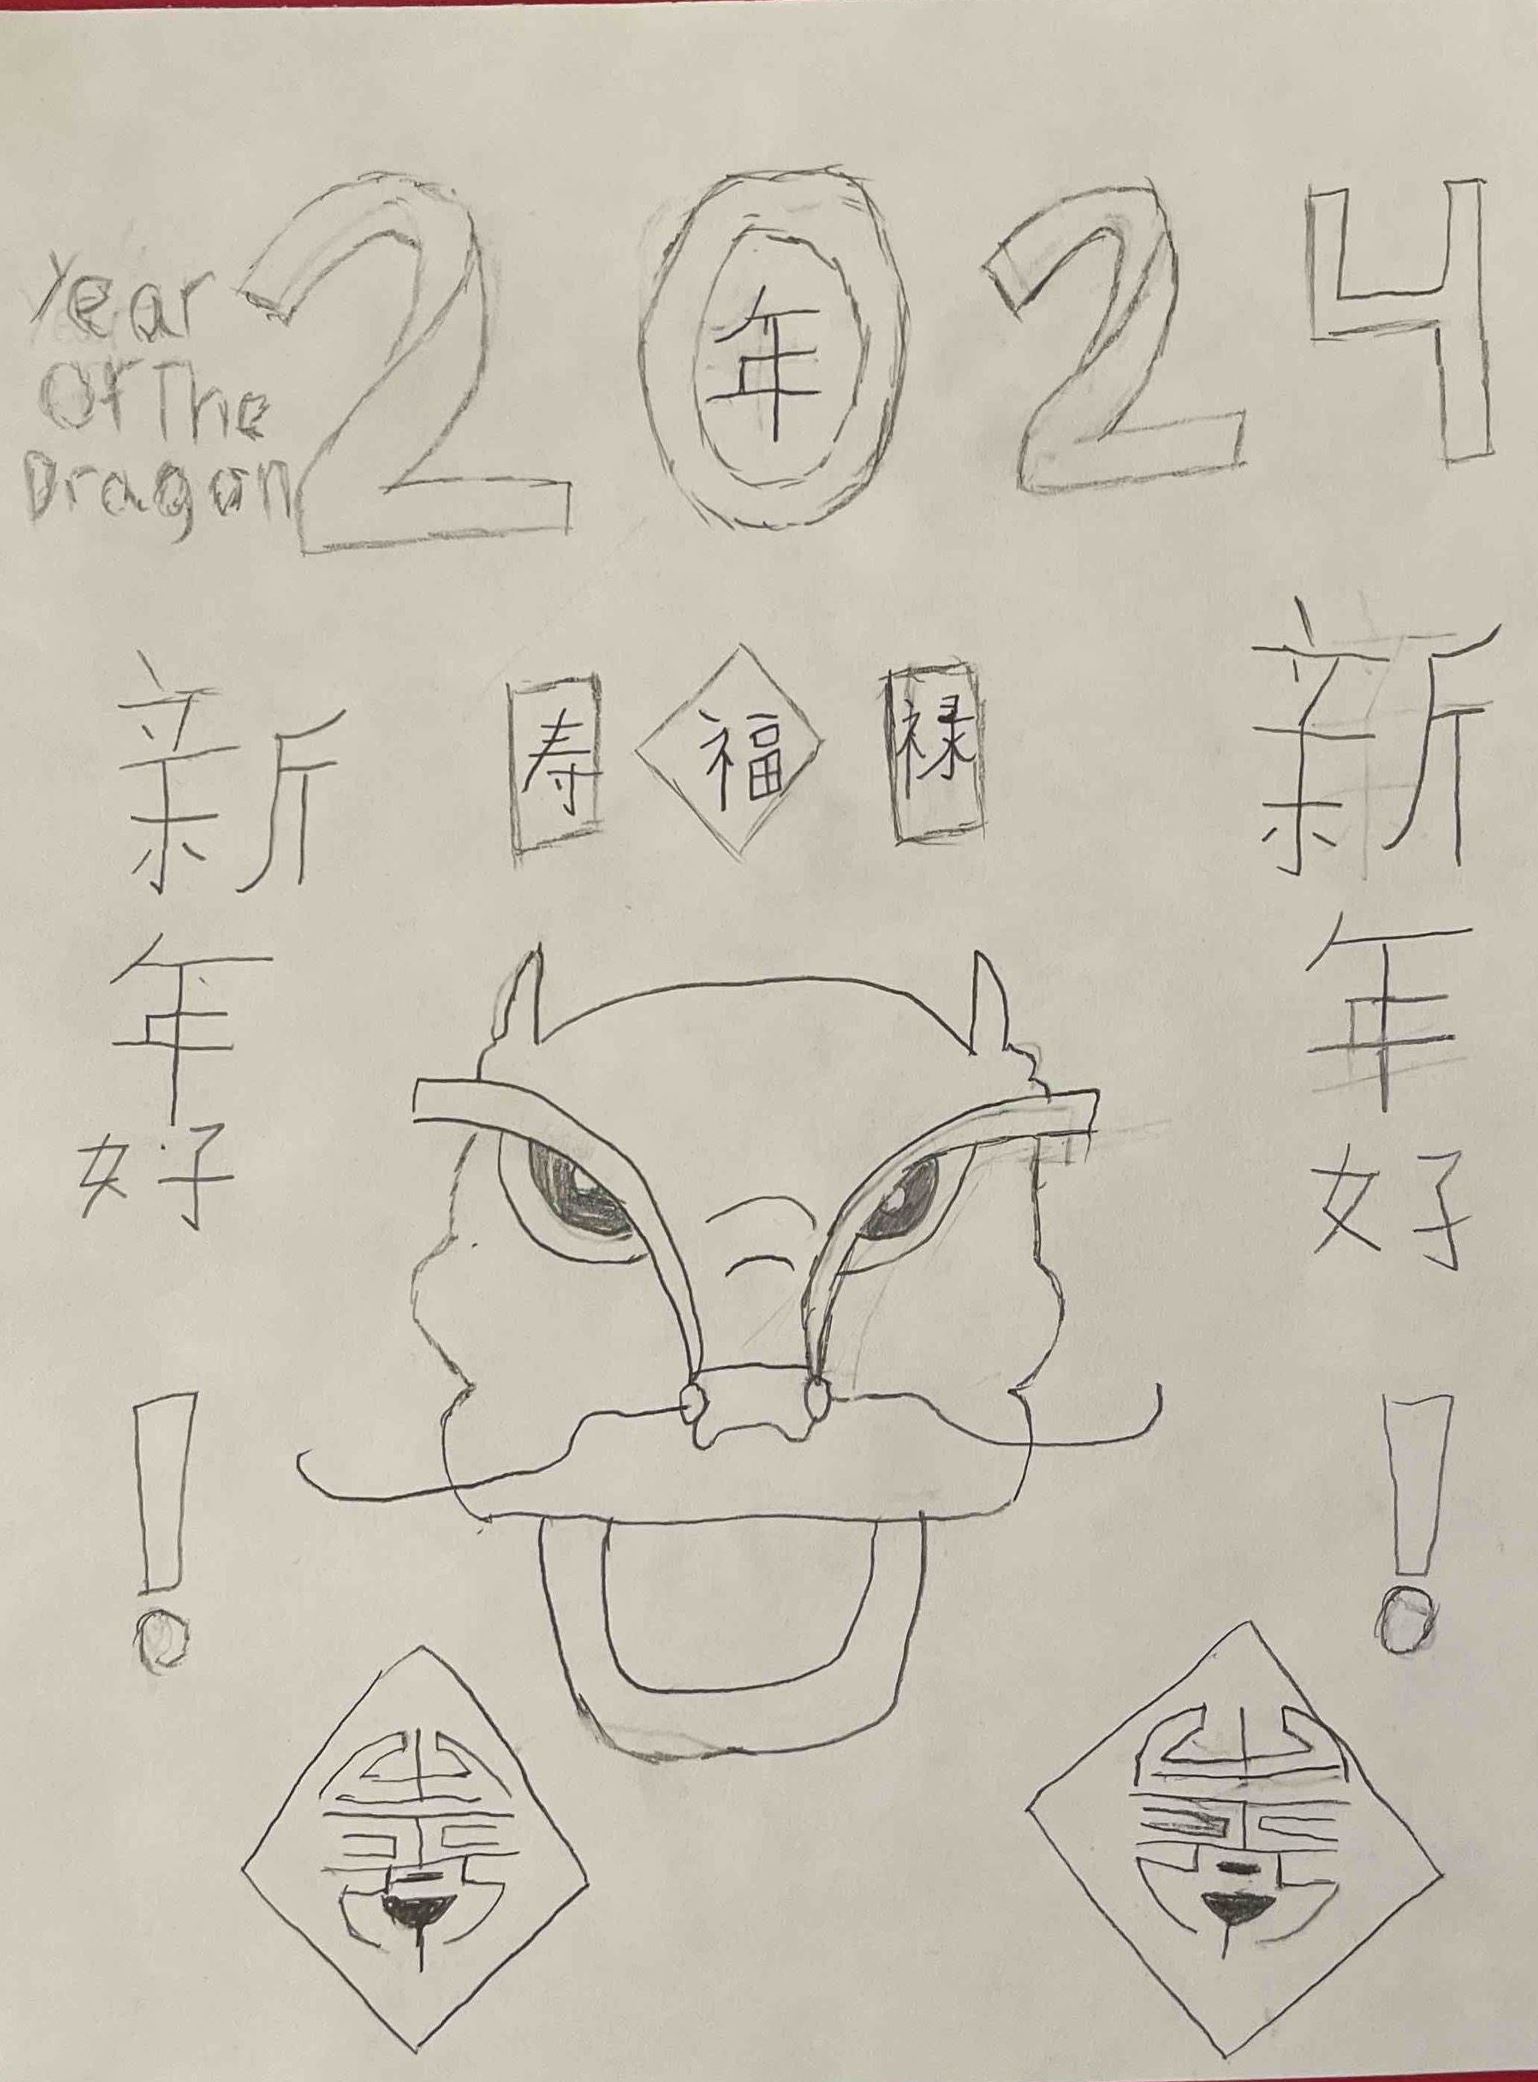 Year
Of The
Dragon
2024
年
寿 福 禄
新年好!
新年好!